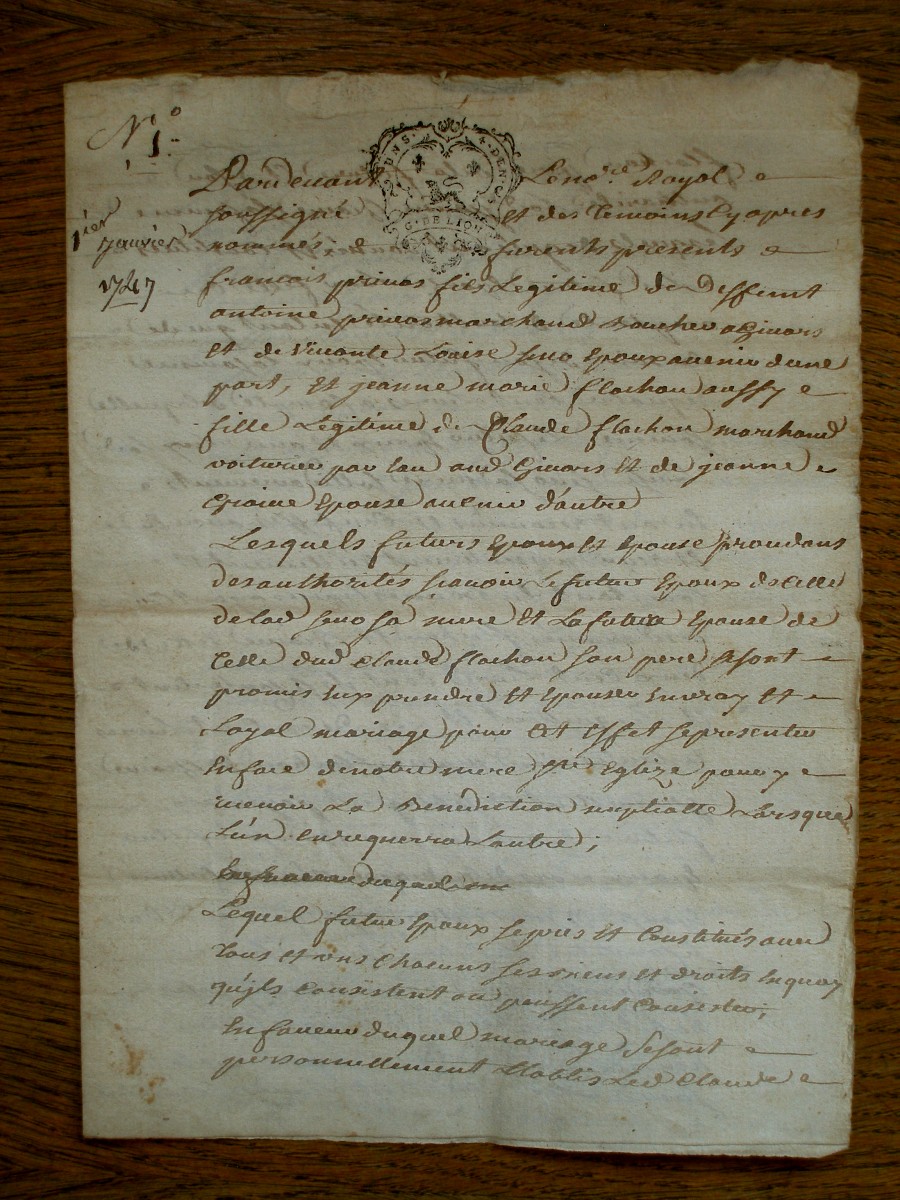 N.° 1.
1ier
Janvier
1747
DEUX SOLS 4. DEN.
G. DE LION
Pardevant Le no.re Royal
soussigné et des temoins Cy apres
nommés furents presents
francois privas fils Legitime de deffunt
antoine privas marchand Boucher a Givors
et de Vivante Louise epoux avenir d'une
part, et jeanne marie flachon aussy
fille Legitime de Claude flachon marchand
voiturier par Eau aud Givors et de jeanne
epouse avenir d'autre
Lesquels futurs Epoux et Epouse procedans
des authorités scavoir Le futur Epoux de Celle
de lad sa mere et La future Epouse de
Celle dud Claude flachon son pere se sont
promis eux prendre et epouser en vray et
Loyal mariage pour Cet effet se presenter
En face de notre mere ste Eglize pour y
recevoir La Benediction nuptialle Lorsque
L'un en requerra L'autre;
Lequel futur Epoux et Constitués avec
tous et uns Chacuns ses biens et droits En quoy
qu'ils Consistent ou puissent Consister;
En faveur duquel mariage se sont
personnellement Etablis Led Claude